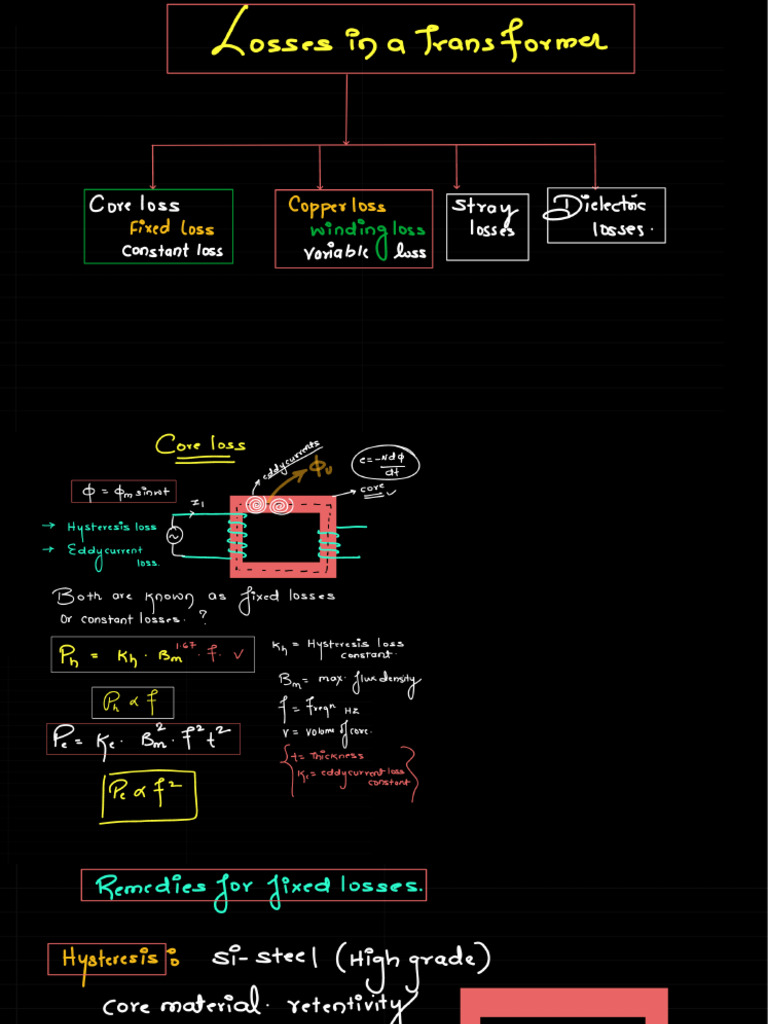 Losses in a Transformer
Core loss
Fixed Loss
Constant loss
Copper loss
winding loss
Variable loss
Stray
losses
Dielectric
losses.
Core loss
eddy currents
ϕu
e = -N dϕ/dt
core
ϕ = ϕm sin wt
I1
→ Hysteresis loss
→ Eddy current
loss.
Both are known as fixed losses
or constant losses. ?
Ph = Kh · Bm^1.67 · f · v
Ph ∝ f
Pe = Ke · Bm^2 · f^2 t^2
Pe ∝ f^2
Kh = Hysteresis loss
constant.
Bm = max. flux density
f = Freqn Hz
v = volume of core.
t = Thickness
Ke = eddy current loss
constant
Remedies for fixed losses.
Hysteresis: si-steel (High grade)
core material. retentivity